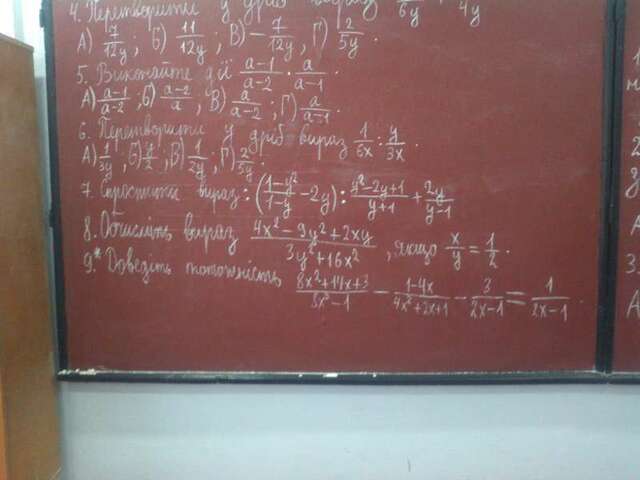 4. Перетворити у дріб вираз 6y 4y
А) 7/12y; Б) 11/12y; В) -7/12y; Г) 2/5y.
5. Виконайте дії (a-1)/(a-2) · a/(a-1).
А) (a-1)/(a-2); Б) (a-2)/a; В) a/(a-2); Г) a/(a-1).
6. Перетворити у дріб вираз 1/6x : y/3x.
А) 1/3y; Б) y/2; В) 1/2y; Г) 2/5y.
7. Спростити вираз: ((1-y²)/(1-y) - 2y) : (y²-2y+1)/(y+1) + 2y/(y-1)
8. Обчисліть вираз (4x²-9y²+2xy)/(3y²+16x²), якщо x/y = 1/2.
9.* Доведіть тотожність (8x²+14x+3)/(8x³-1) - (1-4x)/(4x²+2x+1) - 3/(2x-1) = 1/(2x-1).